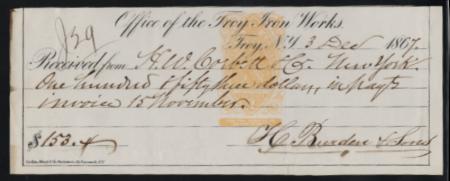 Office of the Troy Iron Works.
129
Troy, N.Y. 3 Dec 1867.
Received from H. W. Corbett & Co. New York.
One hundred & fifty three dollars, in payt
invoice 15 November.
$153.
H. Burden & Sons